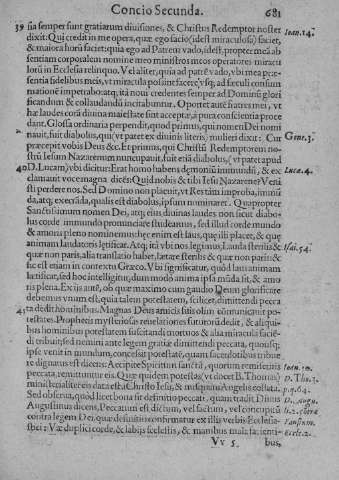 Concio Secunda. 681
39 sia semper sunt gratiarum diuisiones, & Christus Redemptor noster Ioan. 14.
dixit: Qui credit in me opera, quæ ego facio (idest miraculosa) faciet,
& maiora horũ faciet: quia ego ad Patrem vado, idest, propter meã ab
sentiam corporalem nomine meo ministros meos operatores miracu
lorũ in Ecclesia relinquo. Vel aliter, quia ad patrẽ vado, vbi mea præ-
sentia fidelibus meis, vt miracula possint facere, vsq; ad seculi consum
mationẽ impetrabo: atq; ita noui credentes semper ad Dominũ glori
ficandum & collaudandũ incitabuntur. Oportet autẽ fratres mei, vt
hæ laudes corã diuina maiestate sint acceptæ, à pura conscientia proce
dant. Glossa ordinaria perpendit, quod primus, qui nomen Dei nomi
nauit, fuit diabolus, qui (vt patet ex diuinis literis) mulieri dixit: Cur Gene. 3.
præcepit vobis Deus &c. Et primus, qui Christũ Redemptorem no-
strũ Iesum Nazarenum nuncupauit, fuit etiã diabolus, (vt patet apud
40 D. Lucam) vbi dicitur: Erat homo habens dęmoniũ immundũ, & ex Luca. 4.
clamauit voce magna dicẽs: Quid nobis & tibi Iesu Nazarene? Veni
sti perdere nos. Sed Domino non placuit, vt Res tim improba, immũ
da, atq; execrãda, qualis est diabolus, ipsum nominaret. Quapropter
Sanctissimum nomen Dei, atq; eius diuinas laudes non sicut diabo-
lus corde immundo pronunciare studeamus, sed illud corde mundo
& amoris pleno nominemus: hęc enim est laus, quę illi placet, & quę
animam laudatoris lętificat. Atq; ità vbi nos legimus, Lauda sterilis & Isai. 54.
quæ non paris, alia translatio habet, lætare sterilis & quæ non paris: &
sic est etiam in contextu Græco. Vbi significatur, quòd laus animam
lætificat, sed hoc intelligitur, dummodò anima ipsa mũda sit, & amo
ris plena. Ex iis autẽ, ob quæ maximo cum gaudio Deum glorificare
debemus vnum est, quia talem potestatem, scilicet, dimittendi pecca
41 ta dedit hominibus. Magnas Deus amicis suis olim cõmunicauit po-
testates. Prophetis mysteriosas reuelationes futurorũ dedit, & aliqui-
bus hominibus potestatem suscitandi mortuos & alia miracula faciẽ-
di tribuit, sed nemini ante legem gratiæ dimittendi peccata, quousq;
ipse venit in mundum, concessit potestatẽ, quam sacerdotibus tribue
re dignatus est dicens: Accipite Spiritum sanctũ, quorum remiseritis Ioan. 20.
peccata, remittuntur eis. Quæ quidem potestas (vt docet B. Thomas) D. Tho. 3.
ministerialiter eis data est à Christo Iesu, & nusquam Angelis collata. p. q. 64.
Sed obserua, quòd licet bona sit definitio peccati, quam tradit Diuus D. Aug.
Augustinus dicens, Peccatum est dictum, vel factum, vel concupitũ li. 2. cõtra
contra legem Dei, quæ definitio ex illis verbis confirmatur Ecclesia- Faustum.
stici: Væ duplici corde, & labiis scelestis, & manibus malè facienti- Eccle. 2.
Vv 5 bus,